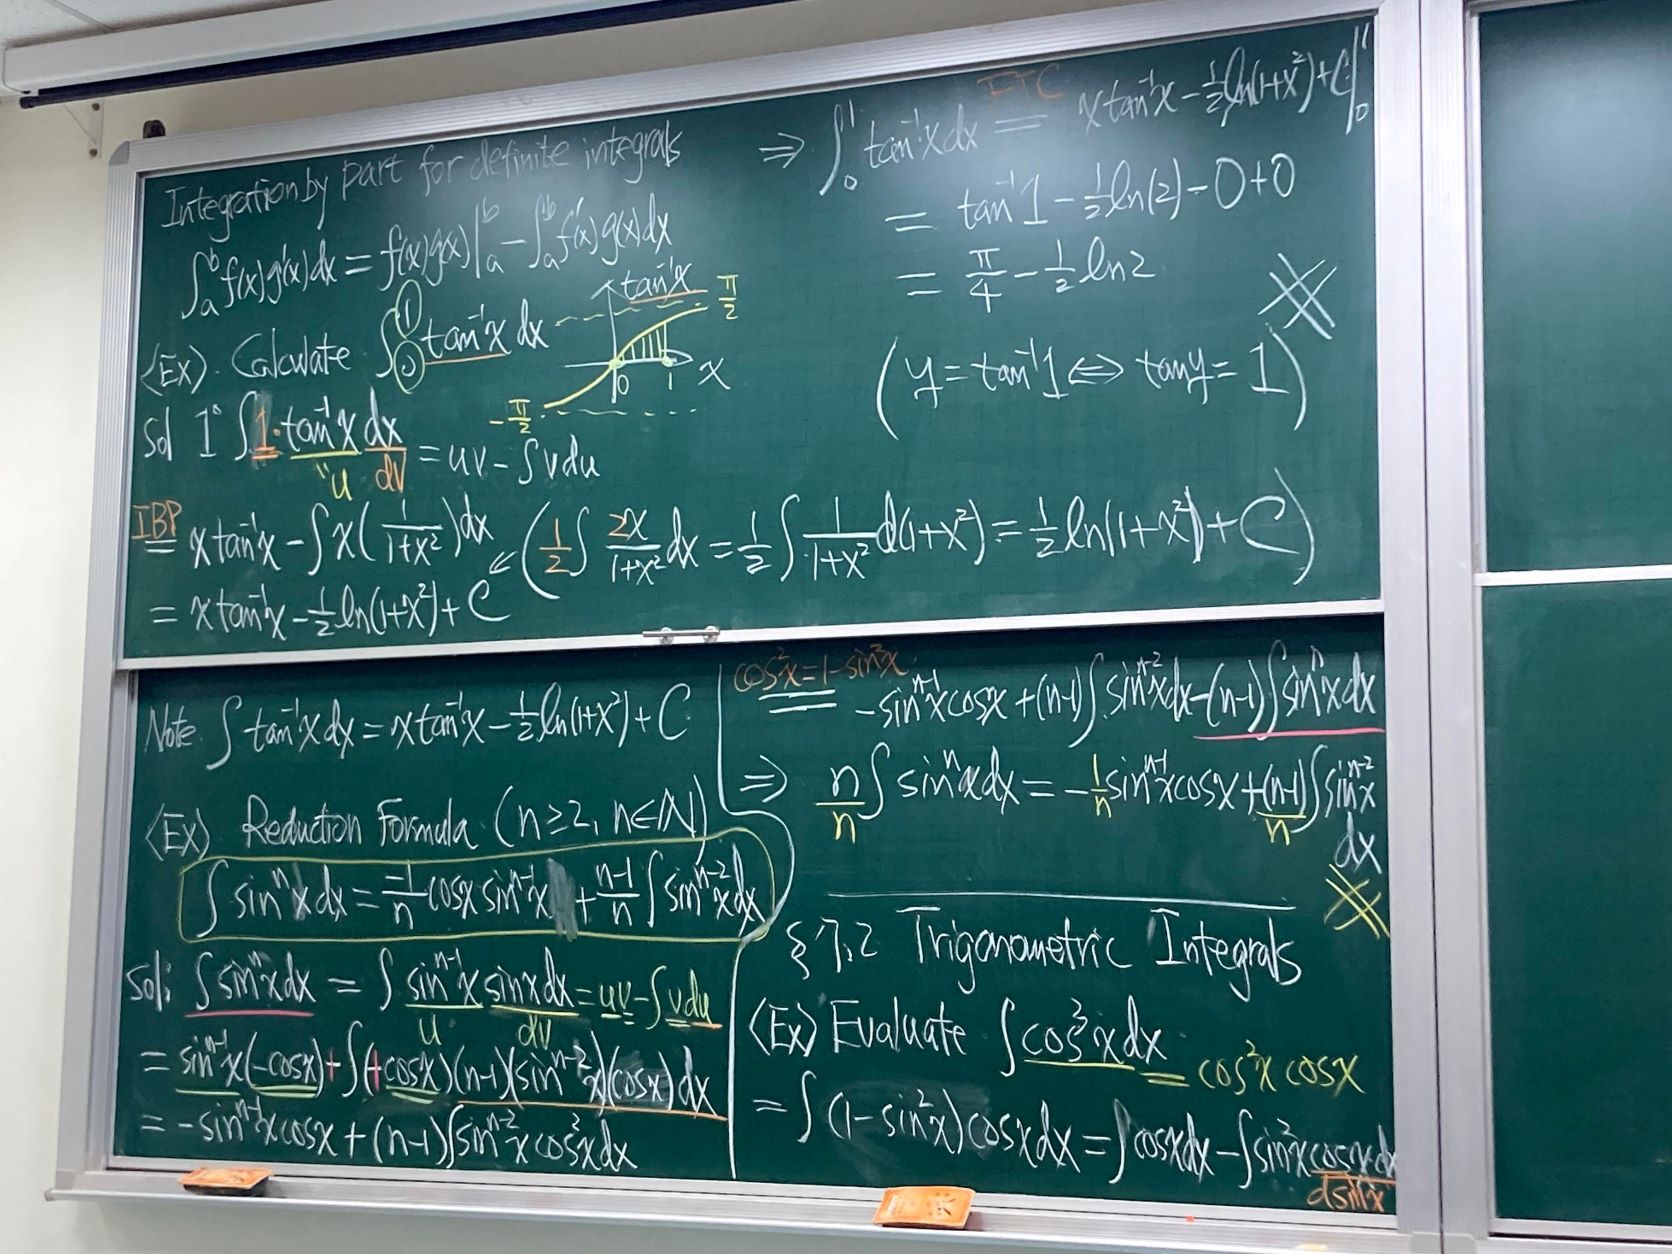 Integration by part for definite integrals
∫ₐᵇ f(x)g'(x)dx = f(x)g(x)|ₐᵇ - ∫ₐᵇ f'(x)g(x)dx
<Ex>. Calculate ∫₀¹ tan⁻¹x dx
tan⁻¹x
π/2
0 1 x
-π/2
Sol 1° ∫1·tan⁻¹x dx = uv - ∫vdu
"u dv
IBP
= x tan⁻¹x - ∫x(1/(1+x²))dx (1/2 ∫ 2x/(1+x²) dx = 1/2 ∫ 1/(1+x²) d(1+x²) = 1/2 ln(1+x²) + C)
= x tan⁻¹x - 1/2 ln(1+x²) + C
⇒ ∫₀¹ tan⁻¹x dx FTC = x tan⁻¹x - 1/2 ln(1+x²) + C|₀¹
= tan⁻¹1 - 1/2 ln(2) - 0 + 0
= π/4 - 1/2 ln2
(y = tan⁻¹1 ⇔ tan y = 1)
Note. ∫ tan⁻¹x dx = x tan⁻¹x - 1/2 ln(1+x²) + C
<Ex> Reduction Formula (n ≥ 2, n ∈ ℕ)
∫ sinⁿx dx = -1/n cosx sinⁿ⁻¹x + n-1/n ∫ sinⁿ⁻²x dx
Sol: ∫ sinⁿx dx = ∫ sinⁿ⁻¹x sinx dx = uv - ∫vdu
u dv
= sinⁿ⁻¹x(-cosx) + ∫(+cosx)(n-1)(sinⁿ⁻²x)(cosx)dx
= -sinⁿ⁻¹x cosx + (n-1)∫sinⁿ⁻²x cos²x dx
cos²x = 1 - sin²x
= -sinⁿ⁻¹x cosx + (n-1)∫ sinⁿ⁻²x dx - (n-1)∫ sinⁿx dx
⇒ n/n ∫ sinⁿx dx = -1/n sinⁿ⁻¹x cosx + (n-1)/n ∫ sinⁿ⁻²x
dx
§7.2 Trigonometric Integrals
<Ex> Evaluate ∫ cos³x dx = cos²x cosx
= ∫ (1 - sin²x) cosx dx = ∫ cosx dx - ∫ sin²x cosx dx
dsinx